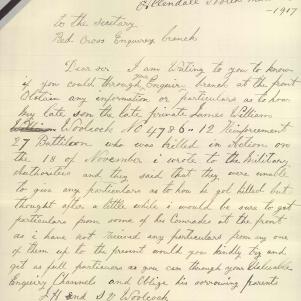 Allendale
-1917
To the Secretary
Red Cross Enquirey branch
Dear sir I am Writing to you to know
if you could through your Enquiry branch at the front
Obtain any information or particulars as to how
my late son the late private James William
Woolcock No 4786-12 Reinforcement
27 Battilion who was killed in Action on
the 18 of November i wrote to the Military
Authorieties and they said that they were unable
to give any particulars as to how he got killed but
thought after a little while i would be sure to get
particulars from some of his Comrades at the front
as i have not recived any particulars from any one
of them up to the present would you kindly try and
get as full particuers as you can through your Valueable
Enquiry Channels and Oblige his sorrowing parents
J H and S D Woolcock